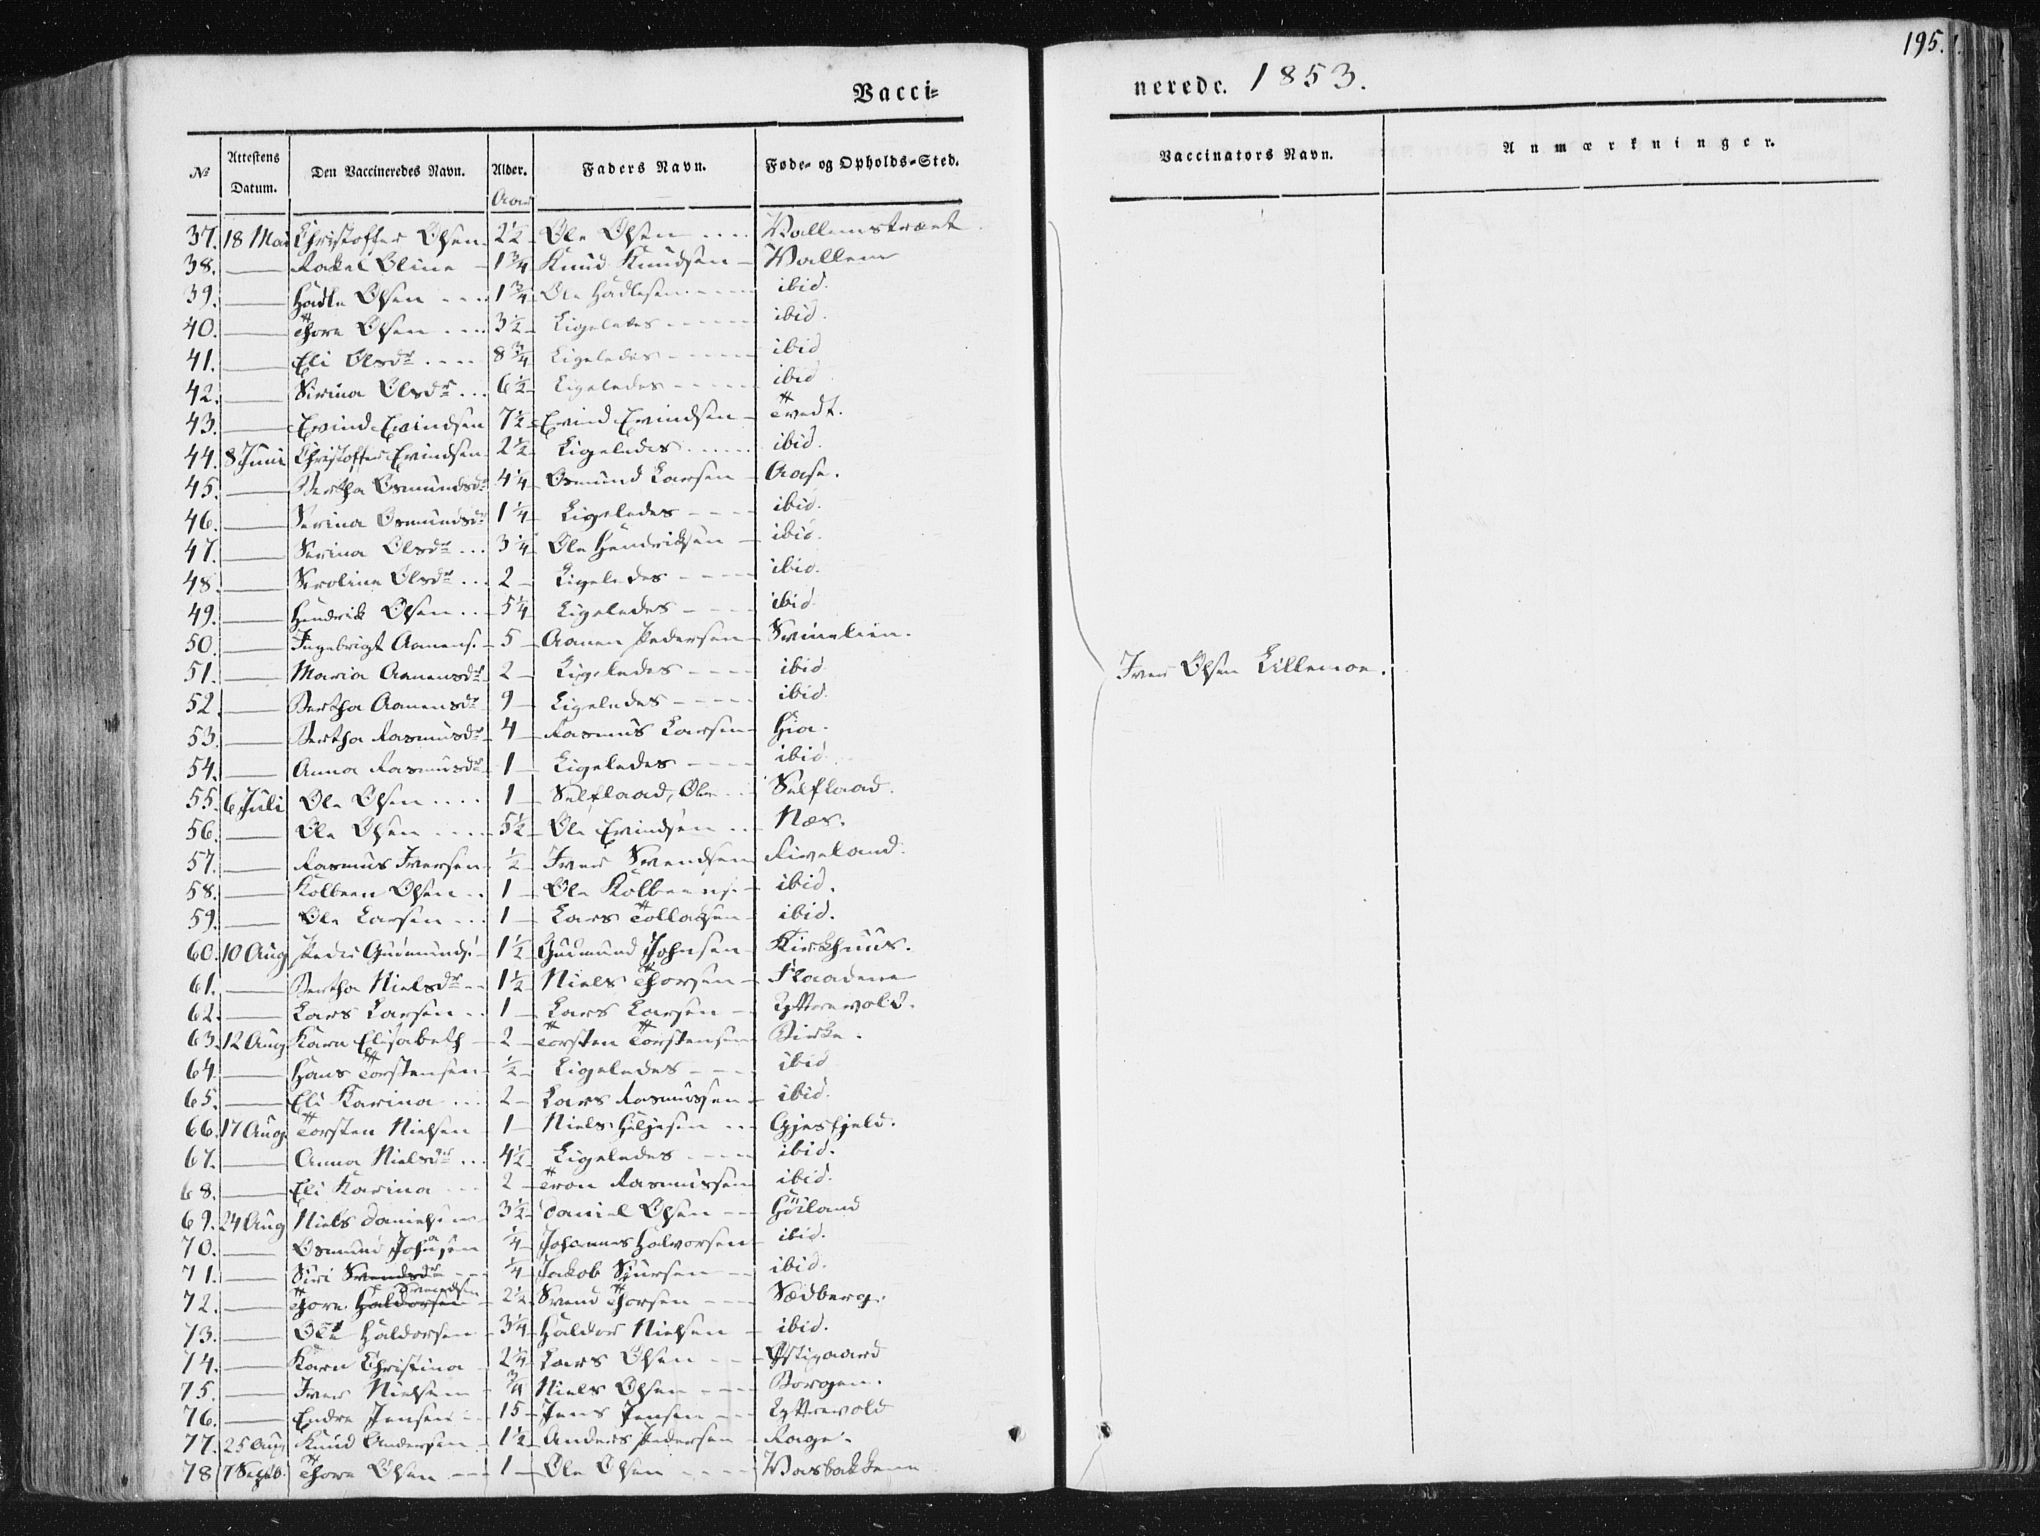 195.
Vacci=
nerede. 1853.
No | Attestens Datum. | Den Vaccineredes Navn. | Alder. Aar | Faders Navn. | Føde- og Opholds-Sted. | Vaccinators Navn. | Anmærkninger.
37. 18 Mai Christoffer Olsen 2½ Ole Olsen Wallemstræet
38. — Rakel Oline 1¾ Knud Knudsen Wallem
39. — Hadle Olsen 1¾ Ole Hadlesen ibid.
40. — Thore Olsen 3½ Ligeledes ibid.
41. — Eli Olsdr 8¾ Ligeledes ibid
42. — Sirina Olsdr 6½ Ligeledes ibid
43. — Evind Evindsen 7½ Evind Evindsen Tvedt.
44. 8 Juni Christoffer Evindsen 2½ Ligeledes ibid.
45. — Bertha Osmundsdr 4¼ Osmund Larsen Aase.
46. — Serina Osmundsdr 1¼ Ligeledes ibid.
47. — Serina Olsdr 3¼ Ole Hendriksen ibid.
48. — Serolina Olsdr 2 Ligeledes ibid.
49. — Hendrik Olsen 5¼ Ligeledes ibid.
50. — Ingebrigt Aamens. 5 Aamen Pedersen Svinelien.
51. — Maria Aamensdr 2 Ligeledes ibid.
52. — Bertha Aamensdr 9 Ligeledes ibid.
53. — Bertha Rasmusdr 4 Rasmus Larsen Hia.
54. — Anna Rasmusdr 1 Ligeledes ibid.
55. 6 Juli Ole Olsen 1 Selflaad, Ole Selflaad.
56. — Ole Olsen 5½ Ole Evindsen Næs.
57. — Rasmus Iversen ½ Iver Svendsen Riveland.
58. — Kolbeen Olsen 1 Ole Kolbeens. ibid.
59. — Ole Larsen 1 Lars Tollagsen ibid.
60. 10 Aug Peder Gudmunds. 1½ Gudmund Johnsen Kirkhuus.
61. — Bertha Nielsdr 1½ Niels Thorsen Flaadene
62. — Lars Larsen 1 Lars Larsen Yttrevold.
63. 12 Aug Karn Elisabeth 2 Torsten Torstensen Birke.
64. — Hans Torstensen ½ Ligeledes ibid
65. — Eli Karina 2 Lars Rasmussen ibid.
66. 17 Aug. Torsten Nielsen 1 Niels Hiljesen Gjesfjeld.
67. — Anna Nielsdr 4½ Ligeledes ibid.
68. — Eli Karina 2 Tron Rasmussen ibid.
69. 24 Aug Niels Danielsen 3½ Daniel Olsen Høiland
70. — Osmund Johasen ¼ Johannes Halvorsen ibid.
71. — Siri Svendsdr ¼ Jakob Sjursen ibid.
72. — Thore Haldorsen Svendsen 2½ Svend Thorsen Sædberg.
73. — Ole Haldorsen 3¼ Haldor Nielsen ibid.
74. — Karn Christina 2¼ Lars Olsen Østigaard
75. — Iver Nielsen ¾ Niels Olsen Borgen.
76. — Endre Jensen 15 Jens Jensen Yttrevold
77. 25 Aug Knud Andersen 1½ Anders Pedersen Rage.
78 7 Septb. Thore Olsen 1 Ole Olsen Wasbakkene
Iver Olsen Lillemoe.